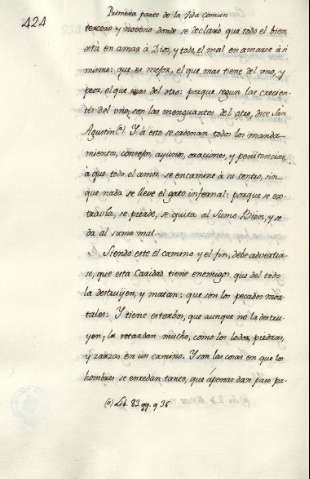 424
Primera parte de la Vida comun
tercero y
donde se declaró que todo el bien
está en amar à Dios, y todo el mal en amarse à si
mismo: que es mejor, el que mas tiene del uno, y
peor, el que mas del otro: porque segun las crecien
tes del uno, son las menguantes del otro, dice San
Agustin (a) Y à esto se ordenan todos los manda-
mientos, consejos, ayunos, oraciones, y penitencias,
à que todo el amor se encamine à su centro, sin
que nada se lleve el gato infernal: porque se ex-
travia, se pierde, se quita al Sumo Bien, y se
da al sumo mal.
Siendo este el camino y el fin, debe advertir
se, que esta Caridad tiene enemigos, que del todo
la destruyen, y matan: que son los pecados mor-
tales: Y tiene estorbos, que aunque no la destru-
yen, la retardan mucho, como los lodos, piedras,
y raizes en un camino. Y son las cosas en que los
hombres se enredan tanto, que apenas dan paso pa-
(a) Lib. 83 qq. q 36